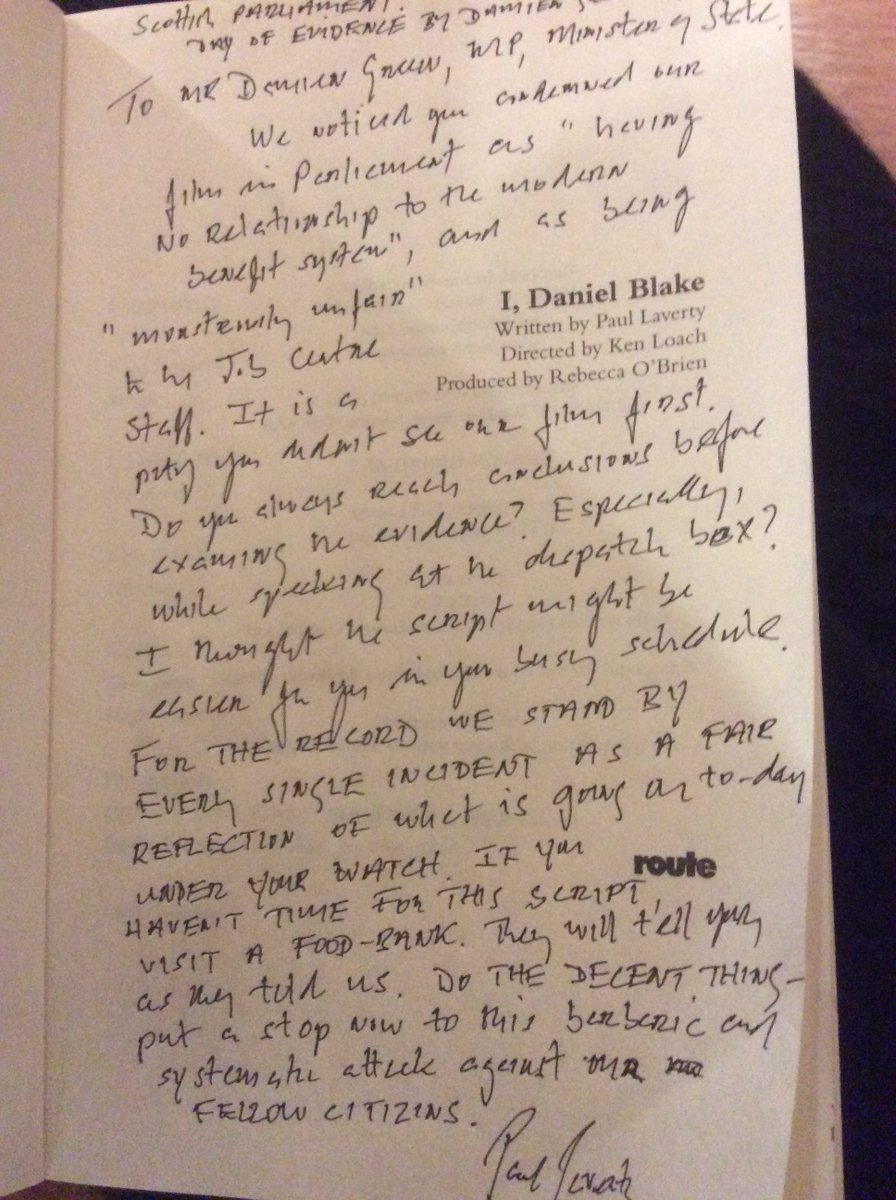 Scottish PARLIAMENT.
DAY OF EVIDENCE BY DAMIEN
To MR DAMIEN Green, MP, Minister of State.
We noticed you condemned our
film in Parliament as "having
No Relationship to the modern
benefit system", and as being
"monstrously unfair"
I, Daniel Blake
Written by Paul Laverty
Directed by Ken Loach
Produced by Rebecca O'Brien
to the Job Centre
Staff. It is a
pity you didn't see our film first.
Do you always reach conclusions before
examining the evidence? Especially,
while speaking at the dispatch box?
I thought the script might be
easier for you in your busy schedule.
FOR THE RECORD WE STAND BY
EVERY SINGLE INCIDENT AS A FAIR
REFLECTION OF what is going on to-day
UNDER YOUR WATCH. IF you
route
HAVEN'T TIME FOR THIS SCRIPT,
VISIT A FOOD-BANK. They will tell you,
as they told us. DO THE DECENT THING-
put a stop now to this barbaric and
systematic attack against our
FELLOW CITIZINS.
Paul Laverty